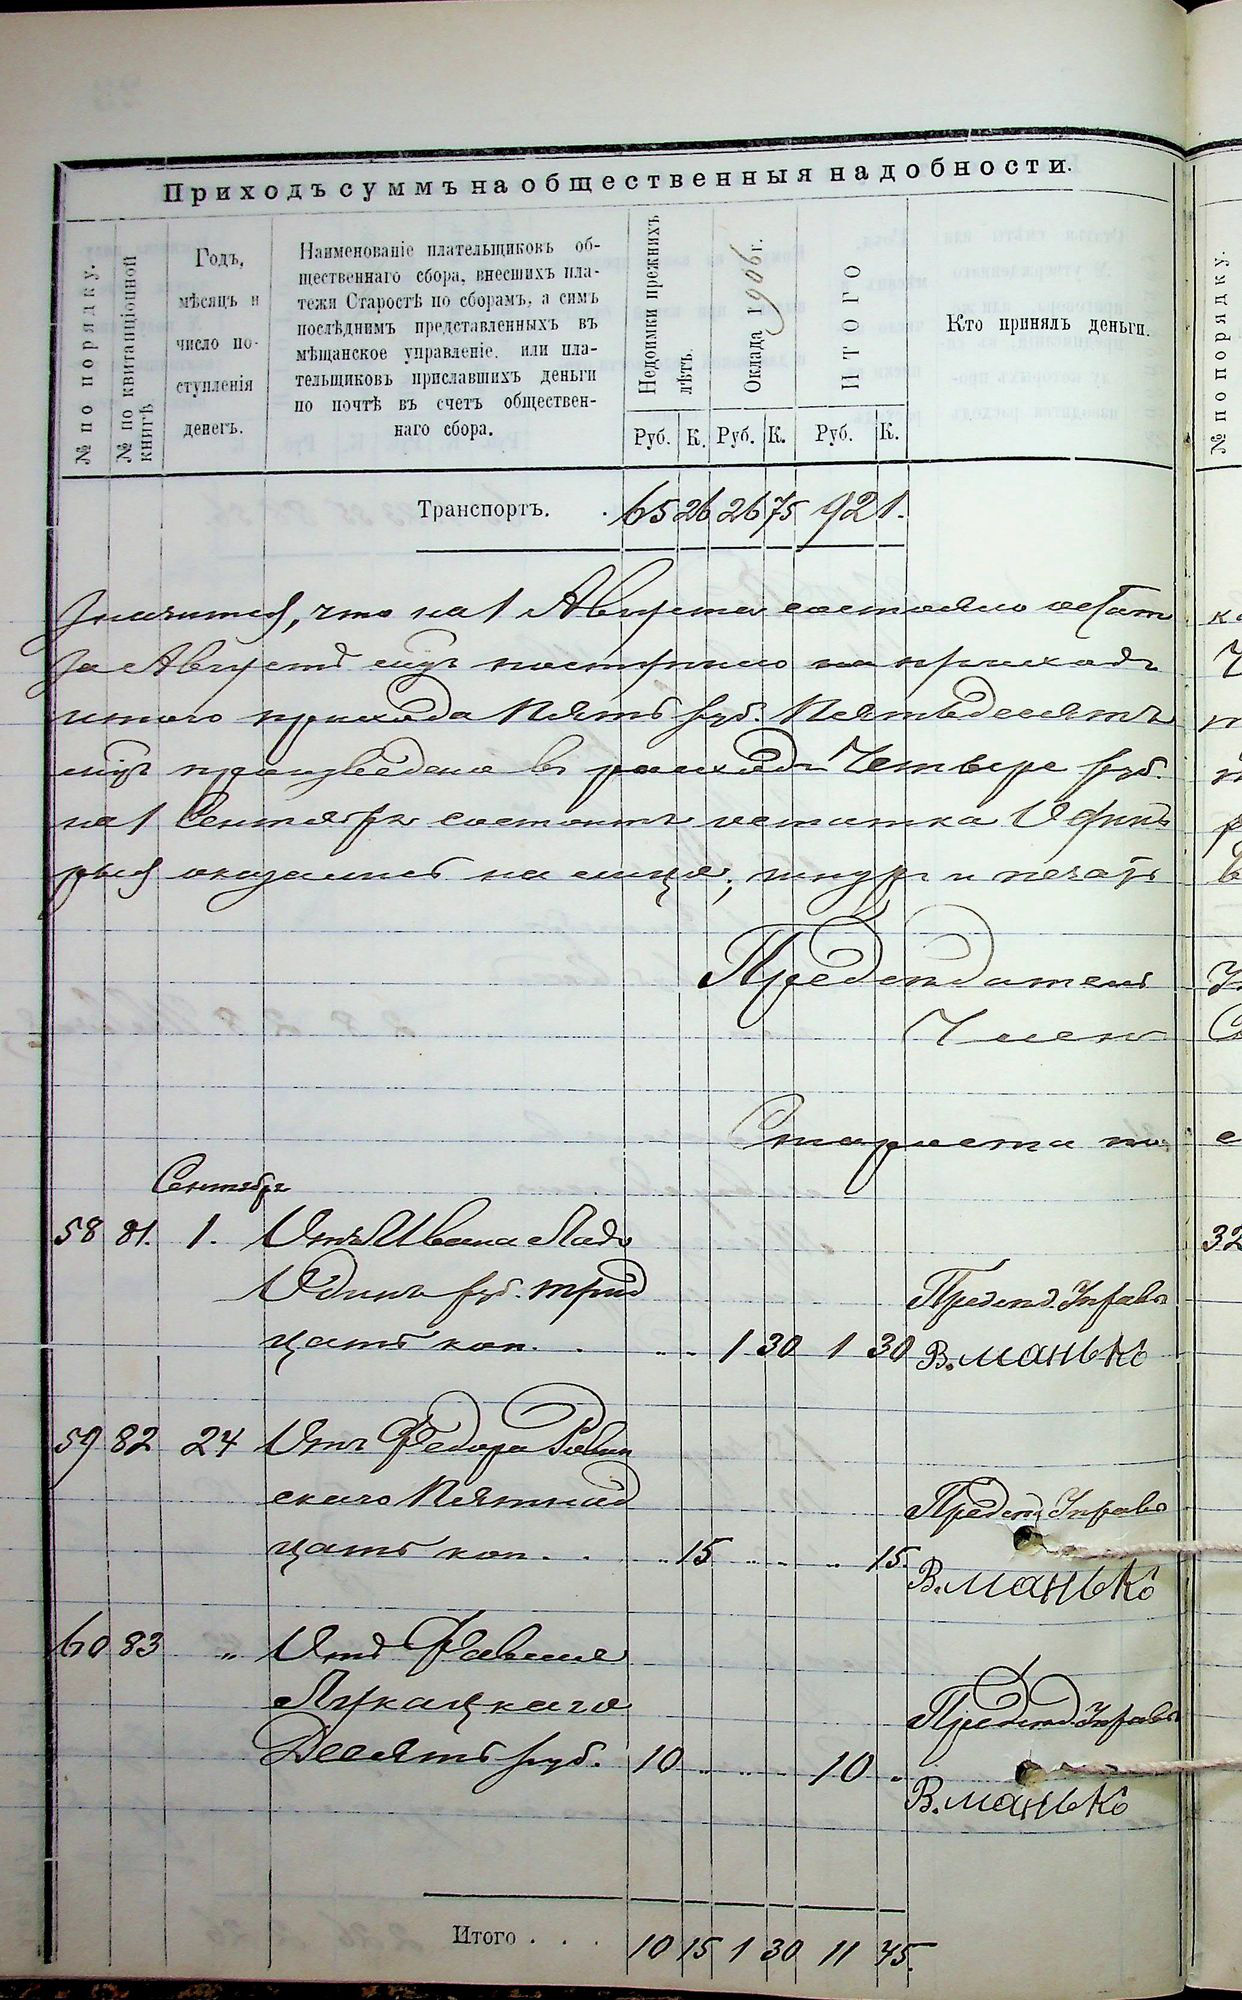 Приходъ суммъ на общественныя надобности.
№ по порядку.
№ по квитанціонной книгѣ.
Годъ,
мѣсяцъ и
число по-
ступленія
денегъ.
Наименованіе плательщиковъ об-
щественнаго сбора, внесшихъ пла-
тежи Старостѣ по сборамъ, а симъ
послѣднимъ представленныхъ въ
мѣщанское управленіе, или пла-
тельщиковъ приславшихъ деньги
по почтѣ въ счетъ обществен-
наго сбора.
Недоимки прежнихъ лѣтъ.
Оклада 1906 г.
ИТОГО
Кто принялъ деньги.
Руб. К. Руб. К. Руб. К.
Транспортъ. . 65 26 26 75 92 1.
Значится, что на 1 Августа состояло остат
За Августъ мѣс. поступило на приходъ
итого прихода Пять руб. Пятьдесятъ
произведено въ расходъ Четыре руб.
на 1 Сентября состоитъ остатка Одинъ
рыя оказались на лицо; шнуръ и печать
Предсѣдатель
Членъ
Староста по
Сентябрь
58 81. 1. Отъ Ивана
Одинъ руб. трид
цать коп. . . . . 1 30 1 30
Предсѣд. Управы
В. Манько
59 82 24 Отъ Федора
скаго Пятнад
цать коп. . . „ 15 „ „ „ 15.
Предсѣд. Управы
В. Манько
60 83 „ Отъ Павла
Лукацкаго
Десять руб. 10 „ „ „ 10 „
Предсѣд. Управы
В. Манько
Итого . . . 10 15 1 30 11 45.
№ по порядку.
32